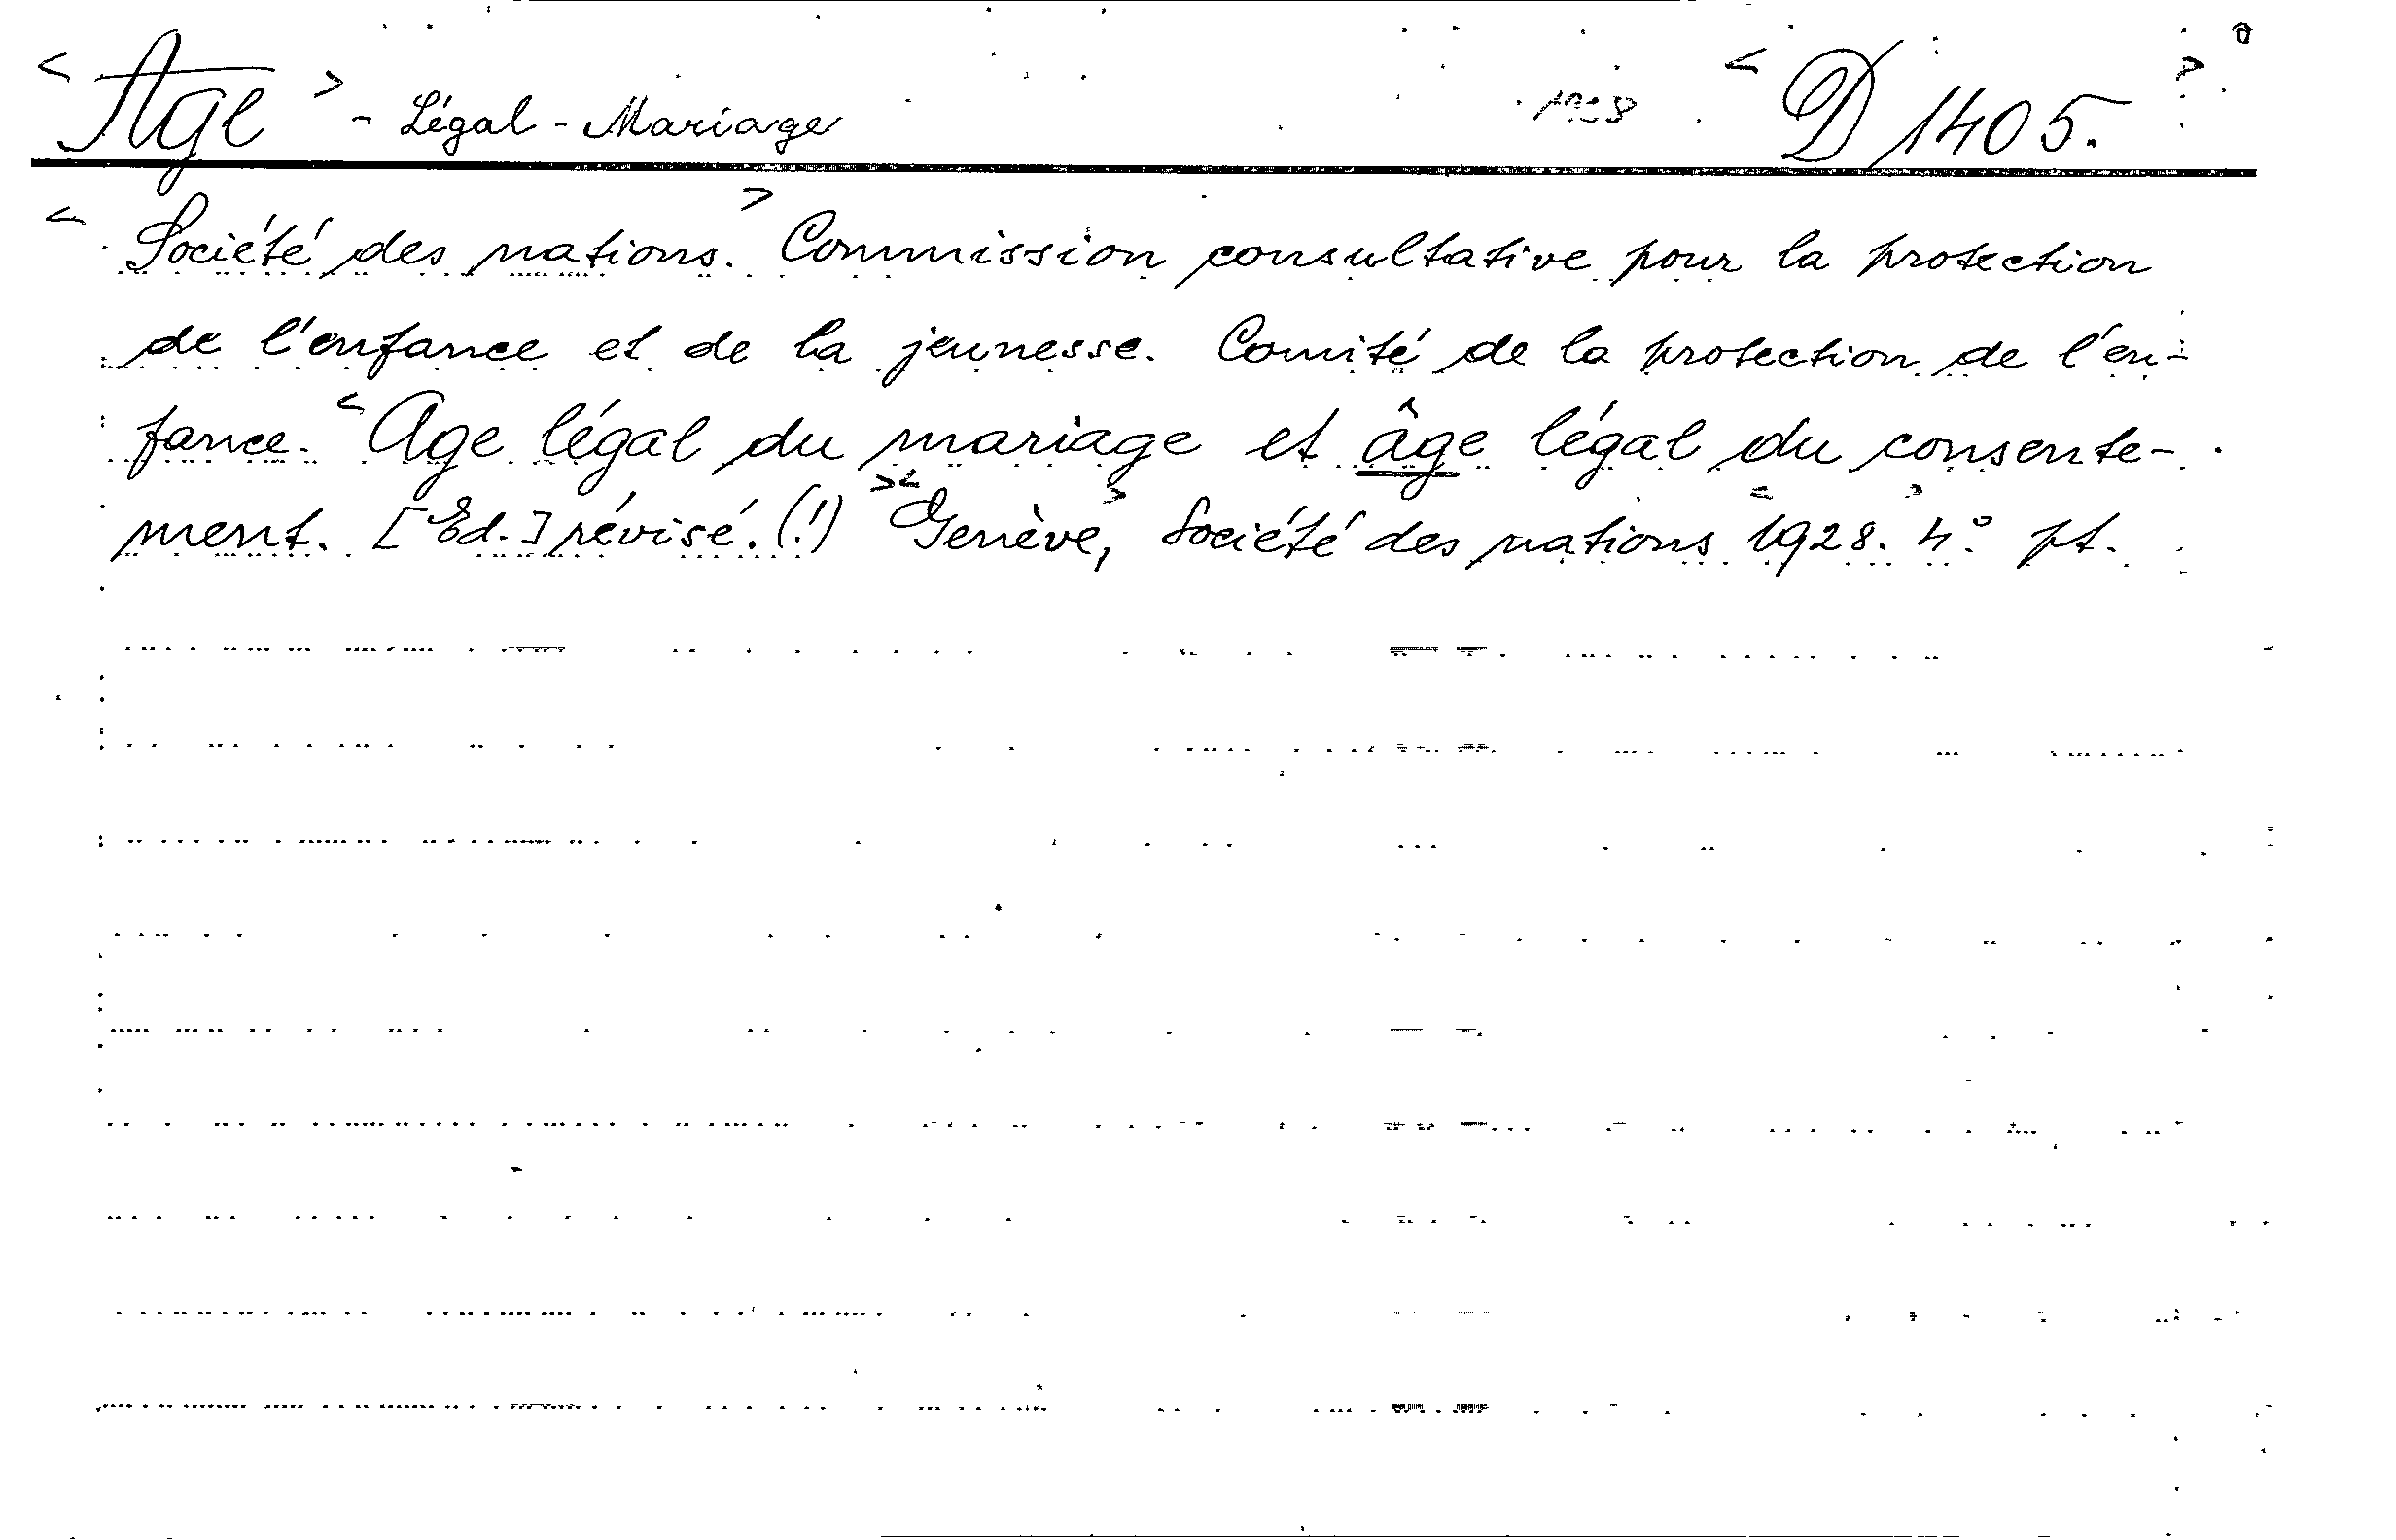 < Age > - Légal - Mariage < D 1405. >
< Société des nations. > Commission consultative pour la protection
de l'enfance et de la jeunesse. Comité de la protection de l'en-
fance. < Age légal du mariage et âge légal du consente-
ment. [Ed.] révisé. (!) > < Genève, > Société des nations < 1928. > 4° pt.